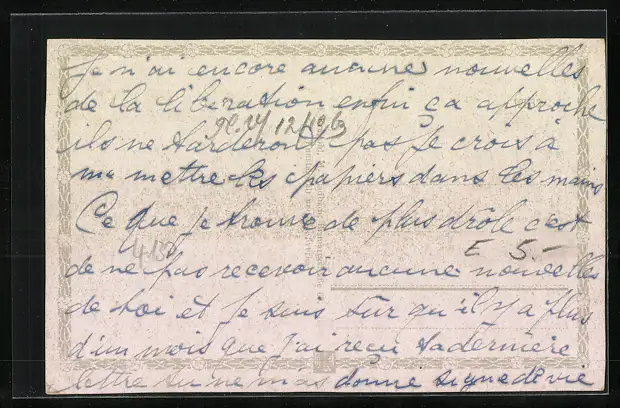 Je n'ai encore aucune nouvelles
de la liberation enfin ça approche
ils ne tarderont pas je crois à
me mettre les papiers dans les mains
Ce que je trouve de plus drôle c'est
E 5.-
de ne pas recevoir aucune nouvelles
de toi et je suis sûr qu'il y a plus
d'un mois que j'ai reçu ta dernière
lettre tu ne m'as donné signe de vie